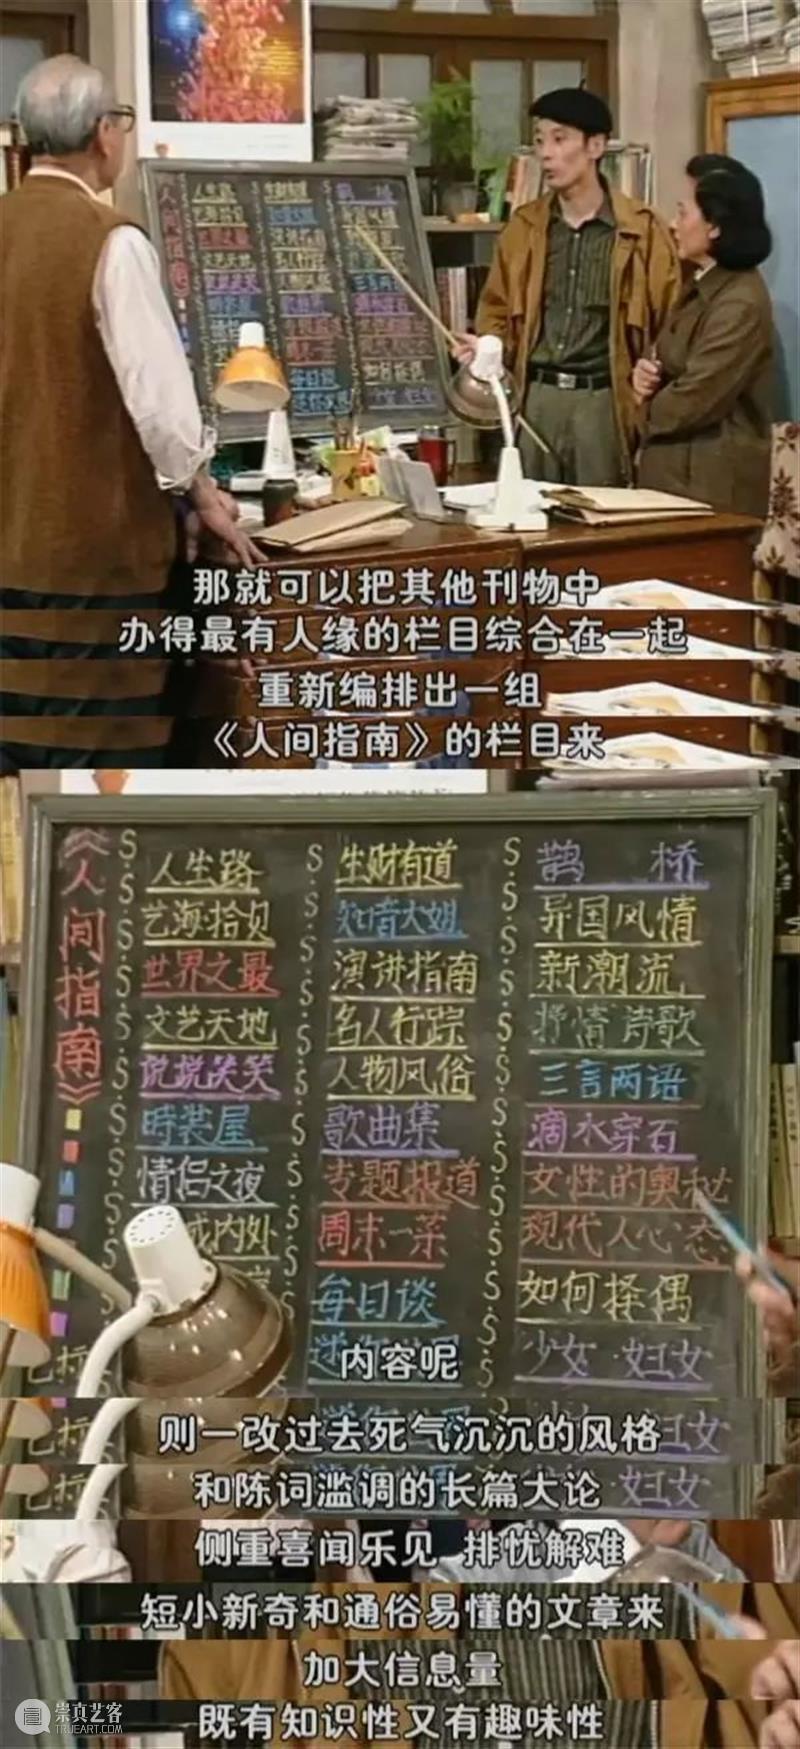 人间指南
那就可以把其他刊物中
办得最有人缘的栏目综合在一起
重新编排出一组
《人间指南》的栏目来
《人间指南》
人生路 生财有道 鹊桥
艺海拾贝 知音大姐 异国风情
世界之最 演讲指南 新潮流
文艺天地 名人行踪 抒情诗歌
说说笑笑 人物风俗 三言两语
時装屋 歌曲集 滴水穿石
情侣之夜 专题报道 女性的奥秘
内外 周末一菜 现代人心态
每日谈 如何择偶
少女·妇女
内容呢
则一改过去死气沉沉的风格
和陈词滥调的长篇大论
侧重喜闻乐见 排忧解难
短小新奇和通俗易懂的文章来
加大信息量
既有知识性又有趣味性
崇真艺客
TRUEART.COM